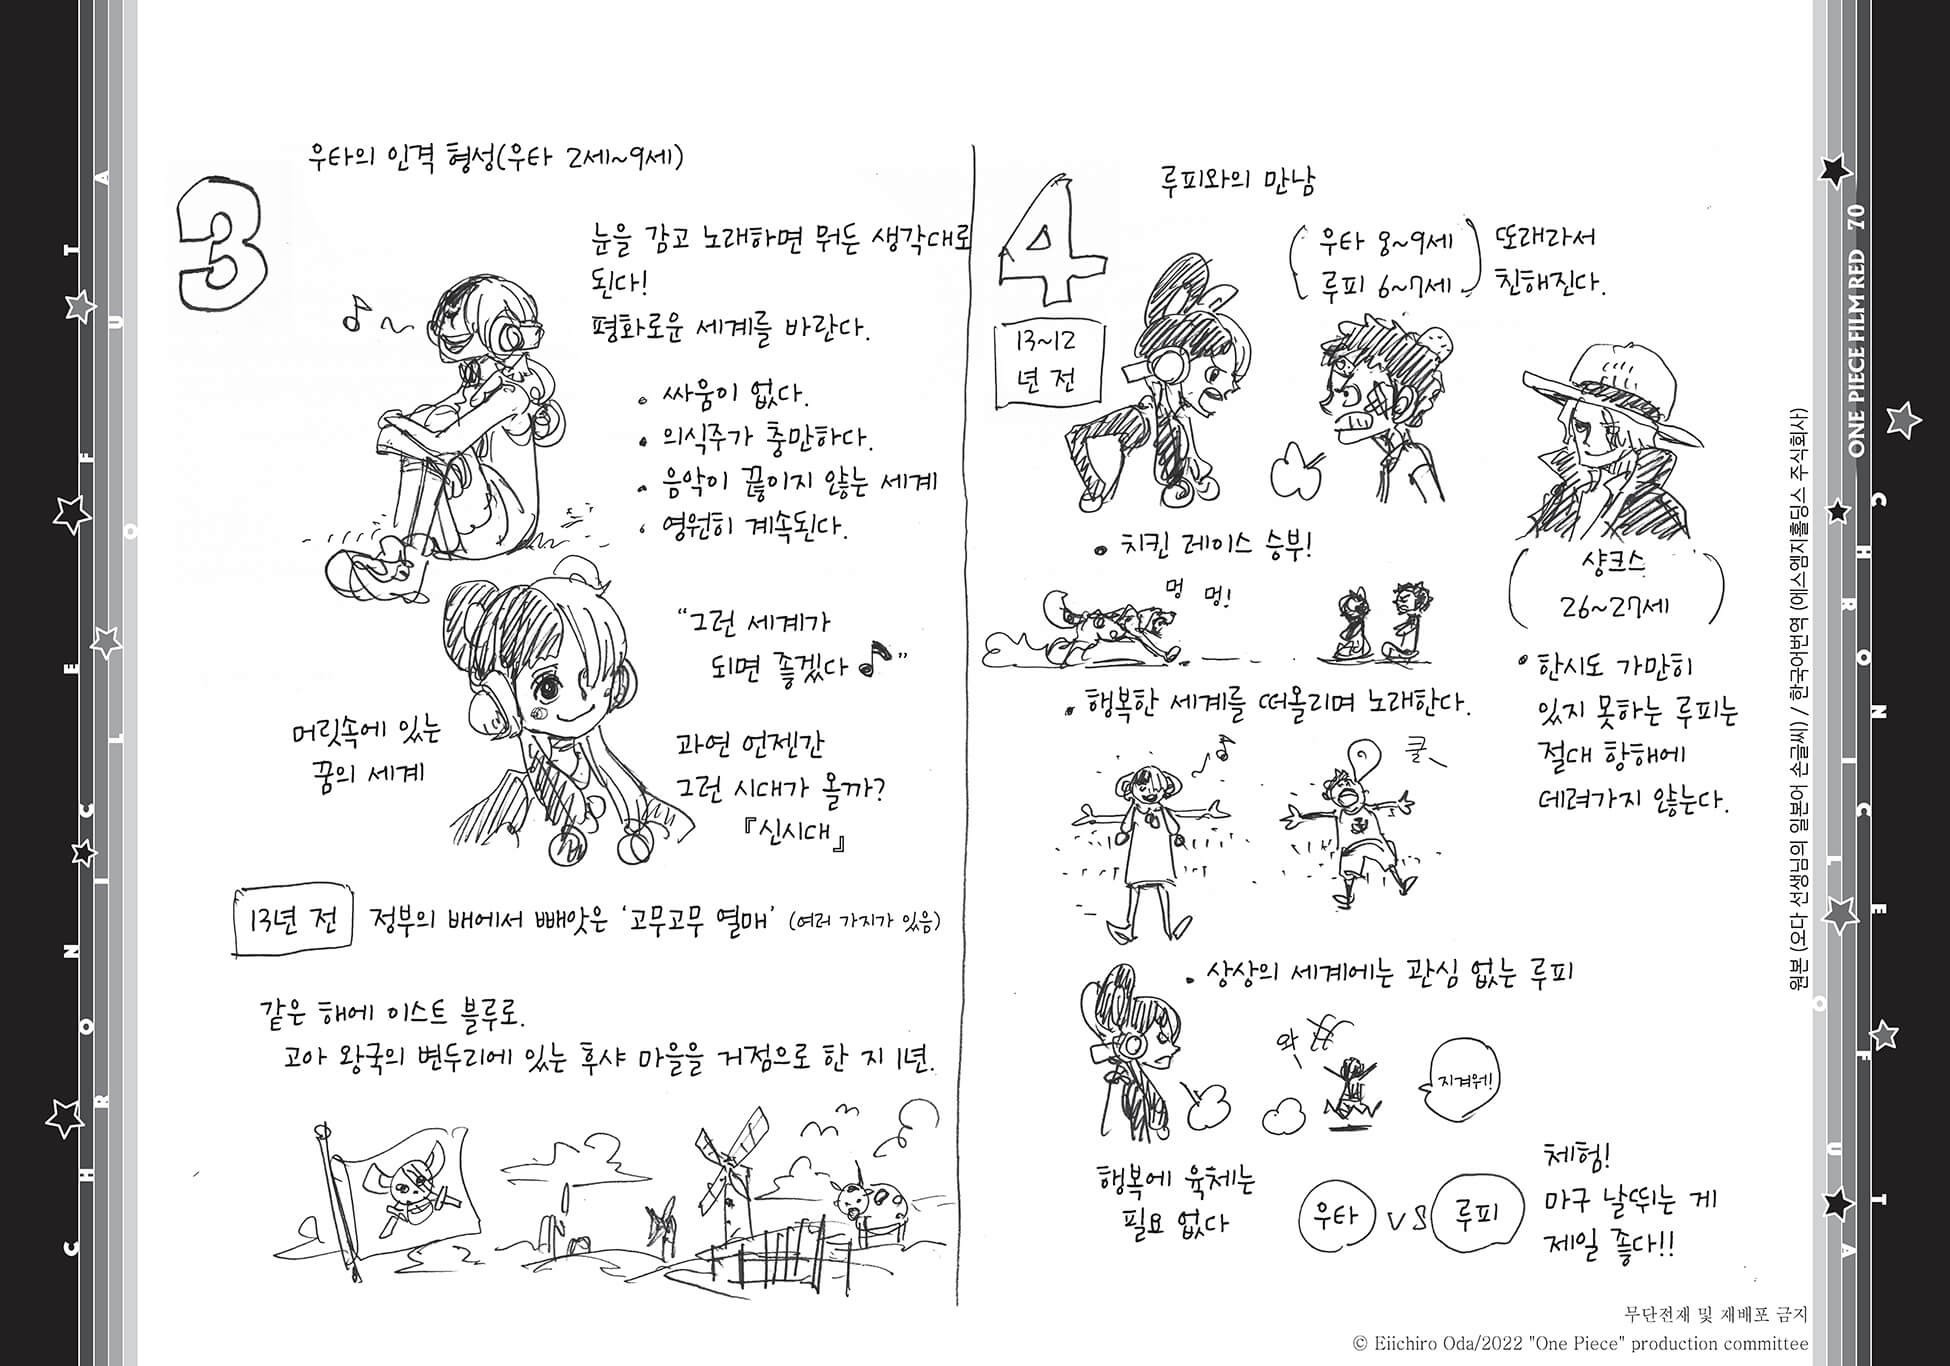 3
우타의 인격 형성(우타 2세~9세)
눈을 감고 노래하면 뭐든 생각대로
된다!
평화로운 세계를 바란다.
• 싸움이 없다.
• 의식주가 충만하다.
• 음악이 끊이지 않는 세계
• 영원히 계속된다.
"그런 세계가
되면 좋겠다♪"
머릿속에 있는
꿈의 세계
과연 언젠간
그런 시대가 올까?
『신시대』
13년 전
정부의 배에서 빼앗은 '고무고무 열매' (여러 가지가 있음)
같은 해에 이스트 블루로.
고아 왕국의 변두리에 있는 후샤 마을을 거점으로 한 지 1년.
4
13~12
년 전
루피와의 만남
(우타 8~9세
루피 6~7세)
또래라서
친해진다.
• 치킨 레이스 승부!
멍 멍!
샹크스
26~27세
• 행복한 세계를 떠올리며 노래한다.
쿨
• 한시도 가만히
있지 못하는 루피는
절대 항해에
데려가지 않는다.
• 상상의 세계에는 관심 없는 루피
와
지겨워!
행복에 육체는
필요 없다
우타 VS 루피
체험!
마구 날뛰는 게
제일 좋다!!
원본 (오다 선생님의 일본어 손글씨) / 한국어번역 (에스엠지홀딩스 주식회사)
ONE PIECE FILM RED 70
CHRONICLE OF UTA
CHRONICLE OF UTA
무단전재 및 재배포 금지
© Eiichiro Oda/2022 "One Piece" production committee